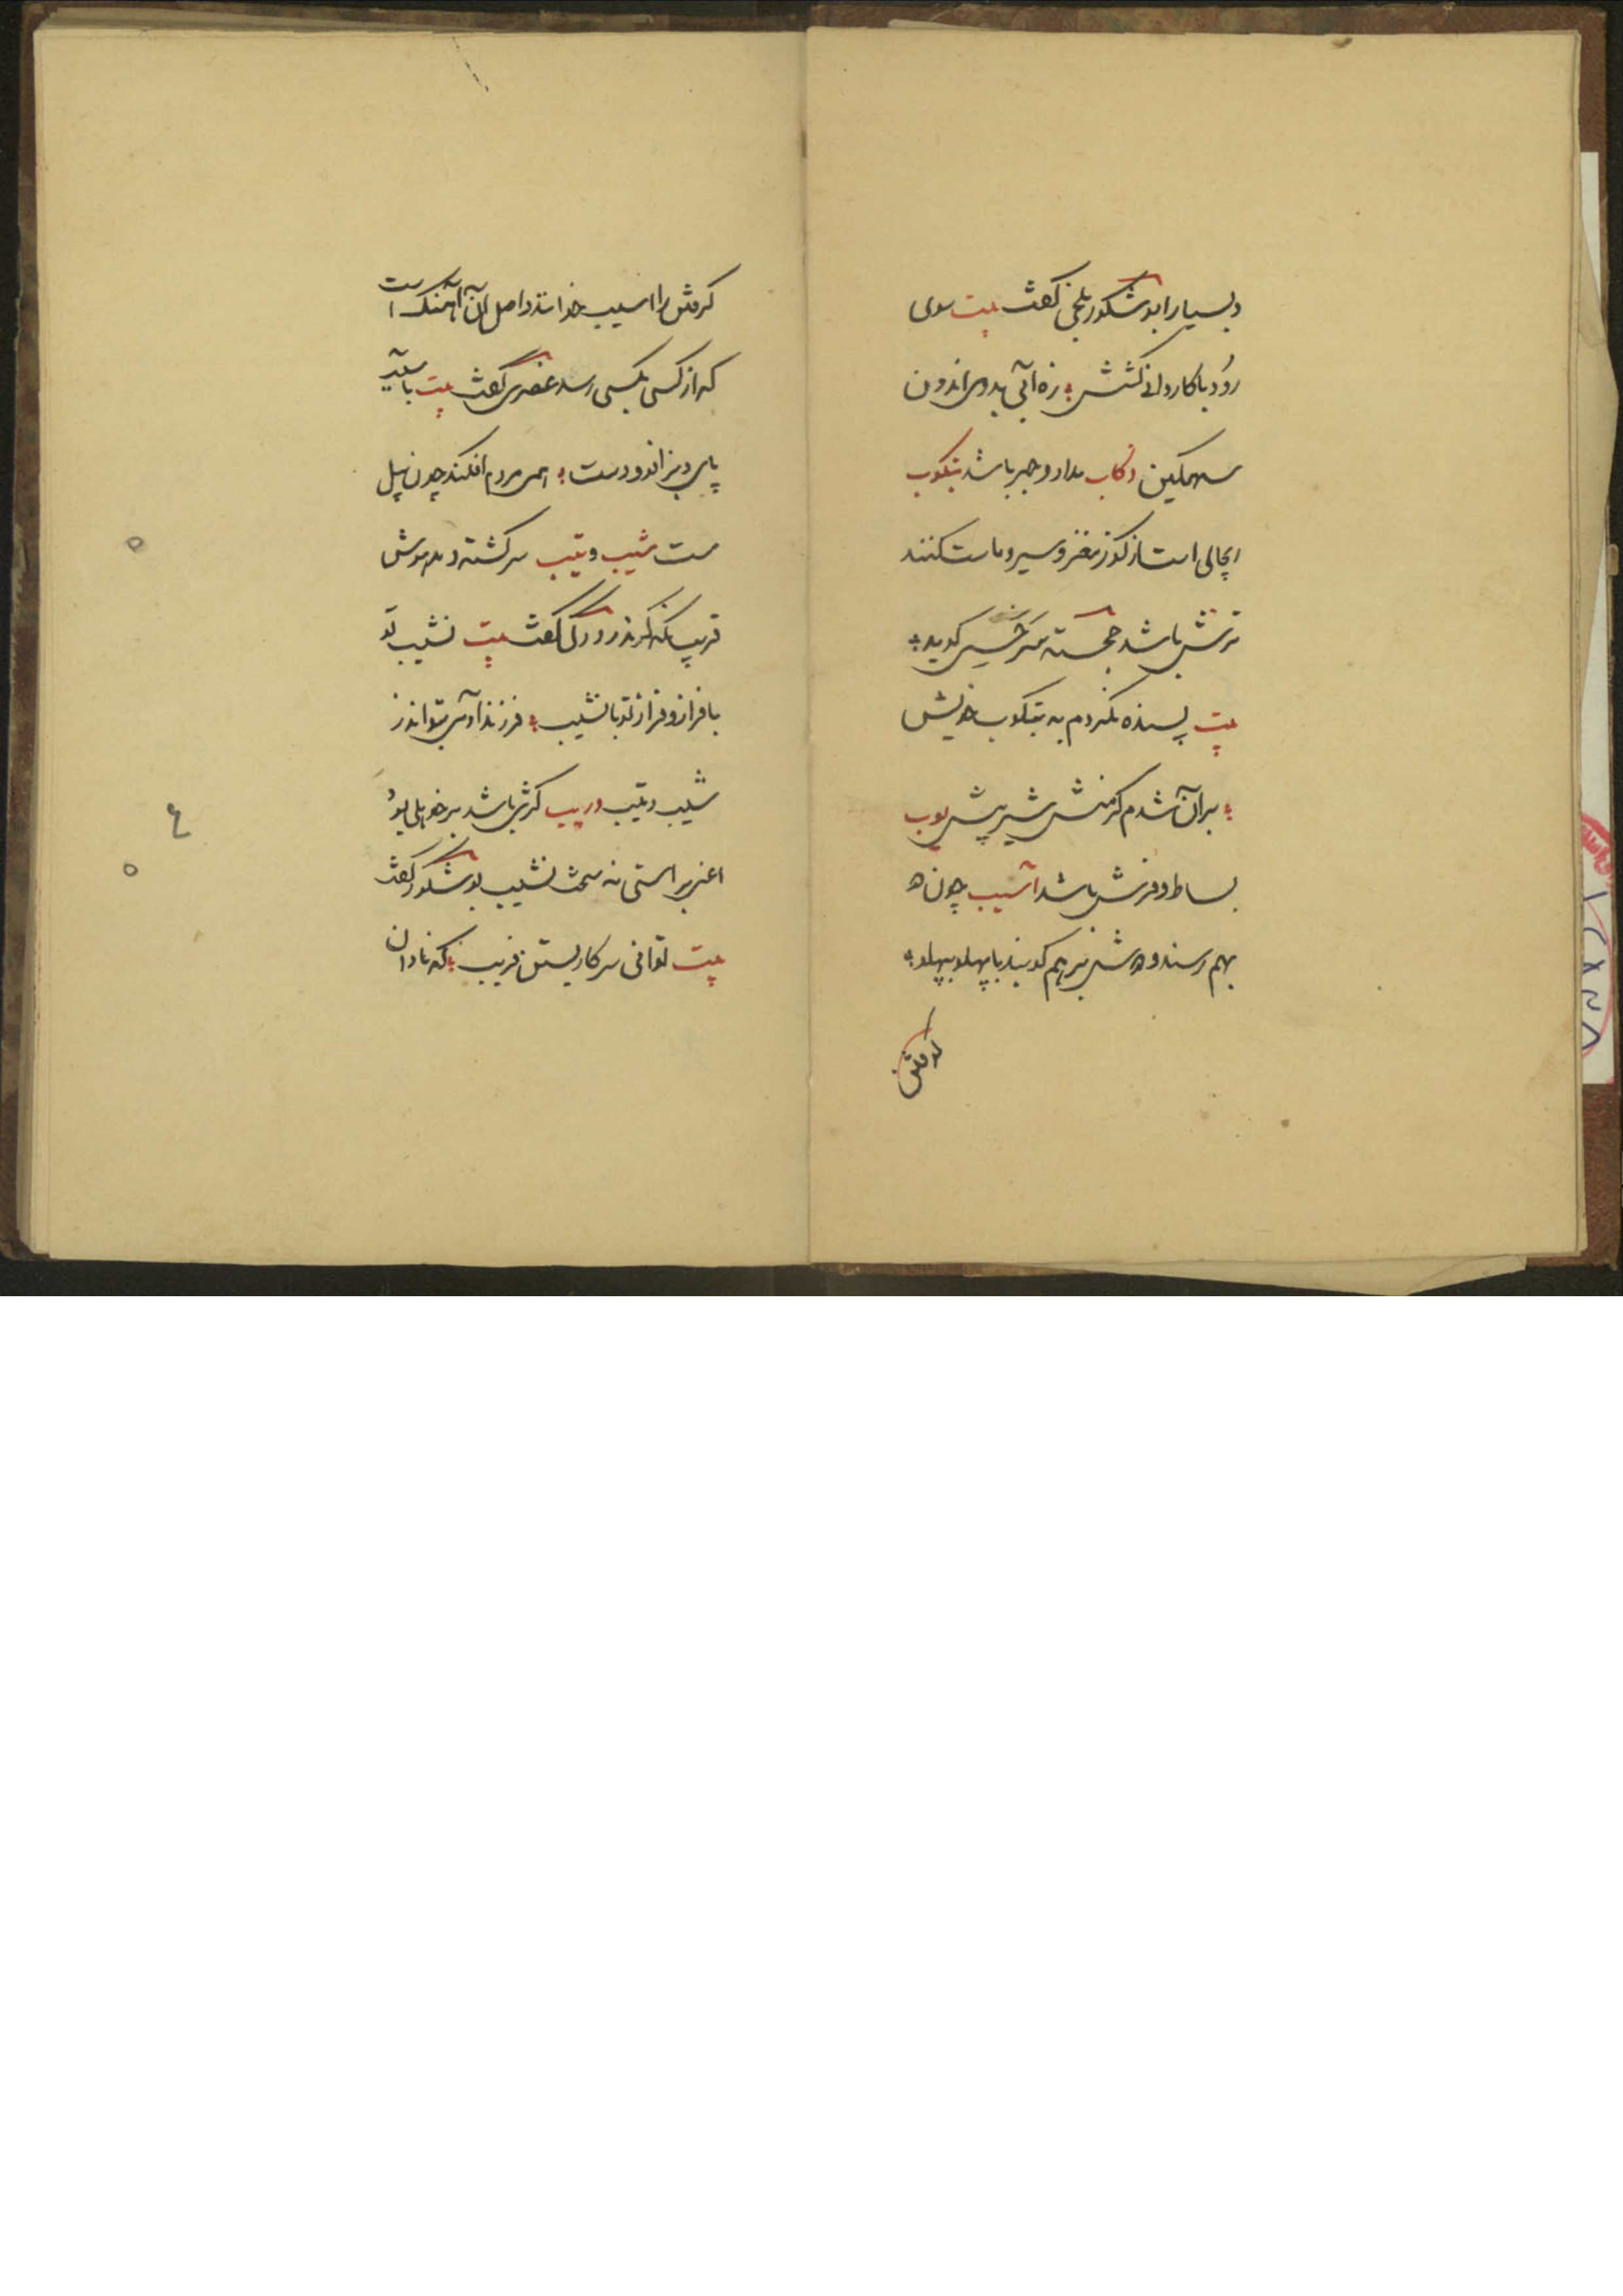 و بسیار ابوشکور بلخی گفت بیت سوی
رود با کاروانی گشن ؛ زه آبی بدوی اندرون
سهمگین زکاب مداد و حبر باشد بتکوب
ریچالی است از گوز مغز و سیر و ماست کنند
ترش باشد خجسته سرخسی گوید ؛
بیت پسنده نکردم به بتکوب خویش
؛ بران شدم کز منش سیر بیش بوب
بساط و فرش باشد آسیب چون ه
بهم رسند و دوش بر هم کوبند یا پهلو بپهلو ؛
کوفتن
کوفتن را اسیب خوانند و اصل آن آهنگ است
که از کسی بکسی رسد عنصری گفت بیت باسیب
پای و بزانو و دست ؛ همی مردم افکند چون پیل
مست شیب و تیب سرگشته و مدهوش
رودکی گفت بیت نشیب تو
با فراز و فراز تو با نشیب ؛ فرزند آدمی بتو اندر
شیب و تیب وریب کژی باشد
اعنی براستی نه بوشکور گفت
بیت توانی بر کار بستن فریب ؛ که نادان